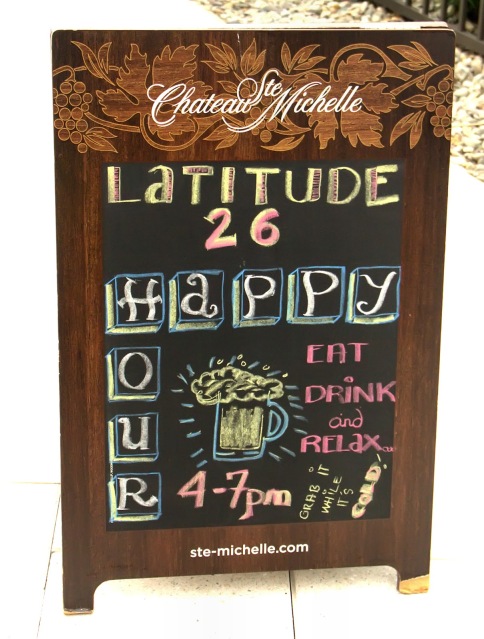 Chateau Ste Michelle
LaTITUDE
26
HaPPY
HOUR
EAT
DRiNK
and
RELAX...
4-7pm
GRAB IT
WHILE
IT'S
COLD!
ste-michelle.com